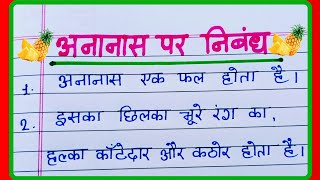 अनानास पर निबंध
1. अनानास एक फल होता है।
2. इसका छिलका भूरे रंग का,
हल्का काँटेदार और कठोर होता है।